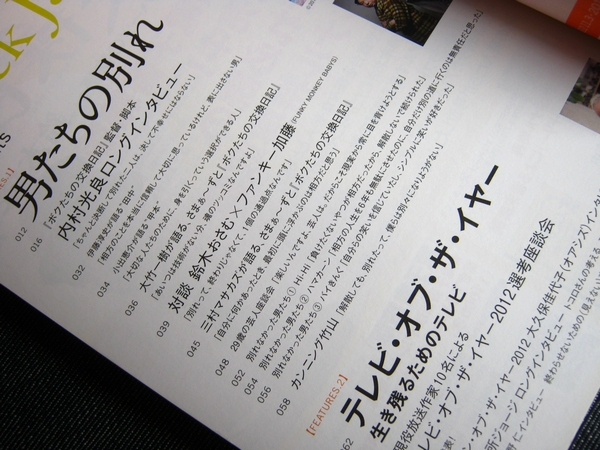 男たちの別れ
012 『ボクたちの交換日記』監督・脚本
内村光良 ロングインタビュー
016 「ちゃんと決断して別れた二人は、決して不幸せにはならない」
032 伊藤淳史が語る“田中”
「相方のことを本当に信頼して大切に思っているけれど、表に出せない男」
034 小出恵介が語る“甲本”
「大切な人たちのために、身を引くっていう選択ができる人」
036 大竹一樹が語る、さまぁ～ずと『ボクたちの交換日記』
「あいつは技術がない分、魂のツッコミなんですよ」
039 対談 鈴木おさむ×ファンキー加藤(FUNKY MONKEY BABYS)
「別れって、終わりじゃなくて、1個の通過点なんです」
045 三村マサカズが語る、さまぁ～ずと『ボクたちの交換日記』
「自分に何かあったとき、最初に頭に浮かぶのは相方だと思う」
048 29歳の芸人座談会「楽しいんですよ、芸人は。だからこそ現実から常に目を背けようとする」
052 別れなかった男たち① Hi-Hi「負けたくないやつが相方だったから、解散しないで続けられた」
054 別れなかった男たち② ハマカーン「相方の人生を6年も無駄にさせたのに、自分だけ別の道に行くのは無責任だと思った」
056 別れなかった男たち③ バイきんぐ「自分らの笑いを信じていたい、シンプルに笑いが好きだった」
058 カンニング竹山「解散しても、別れたって、僕らは別々になりようがない」
【FEATURES.2】
062 テレビ・オブ・ザ・イヤー
生き残るためのテレビ
現役放送作家10名による
テレビ・オブ・ザ・イヤー2012 選考座談会
発表!
・オブ・ザ・イヤー2012 大久保佳代子(オアシズ)インタ
所ジョージ ロングインタビュー トコロさんの考える
野 仁 インタビュー 終わらせないための